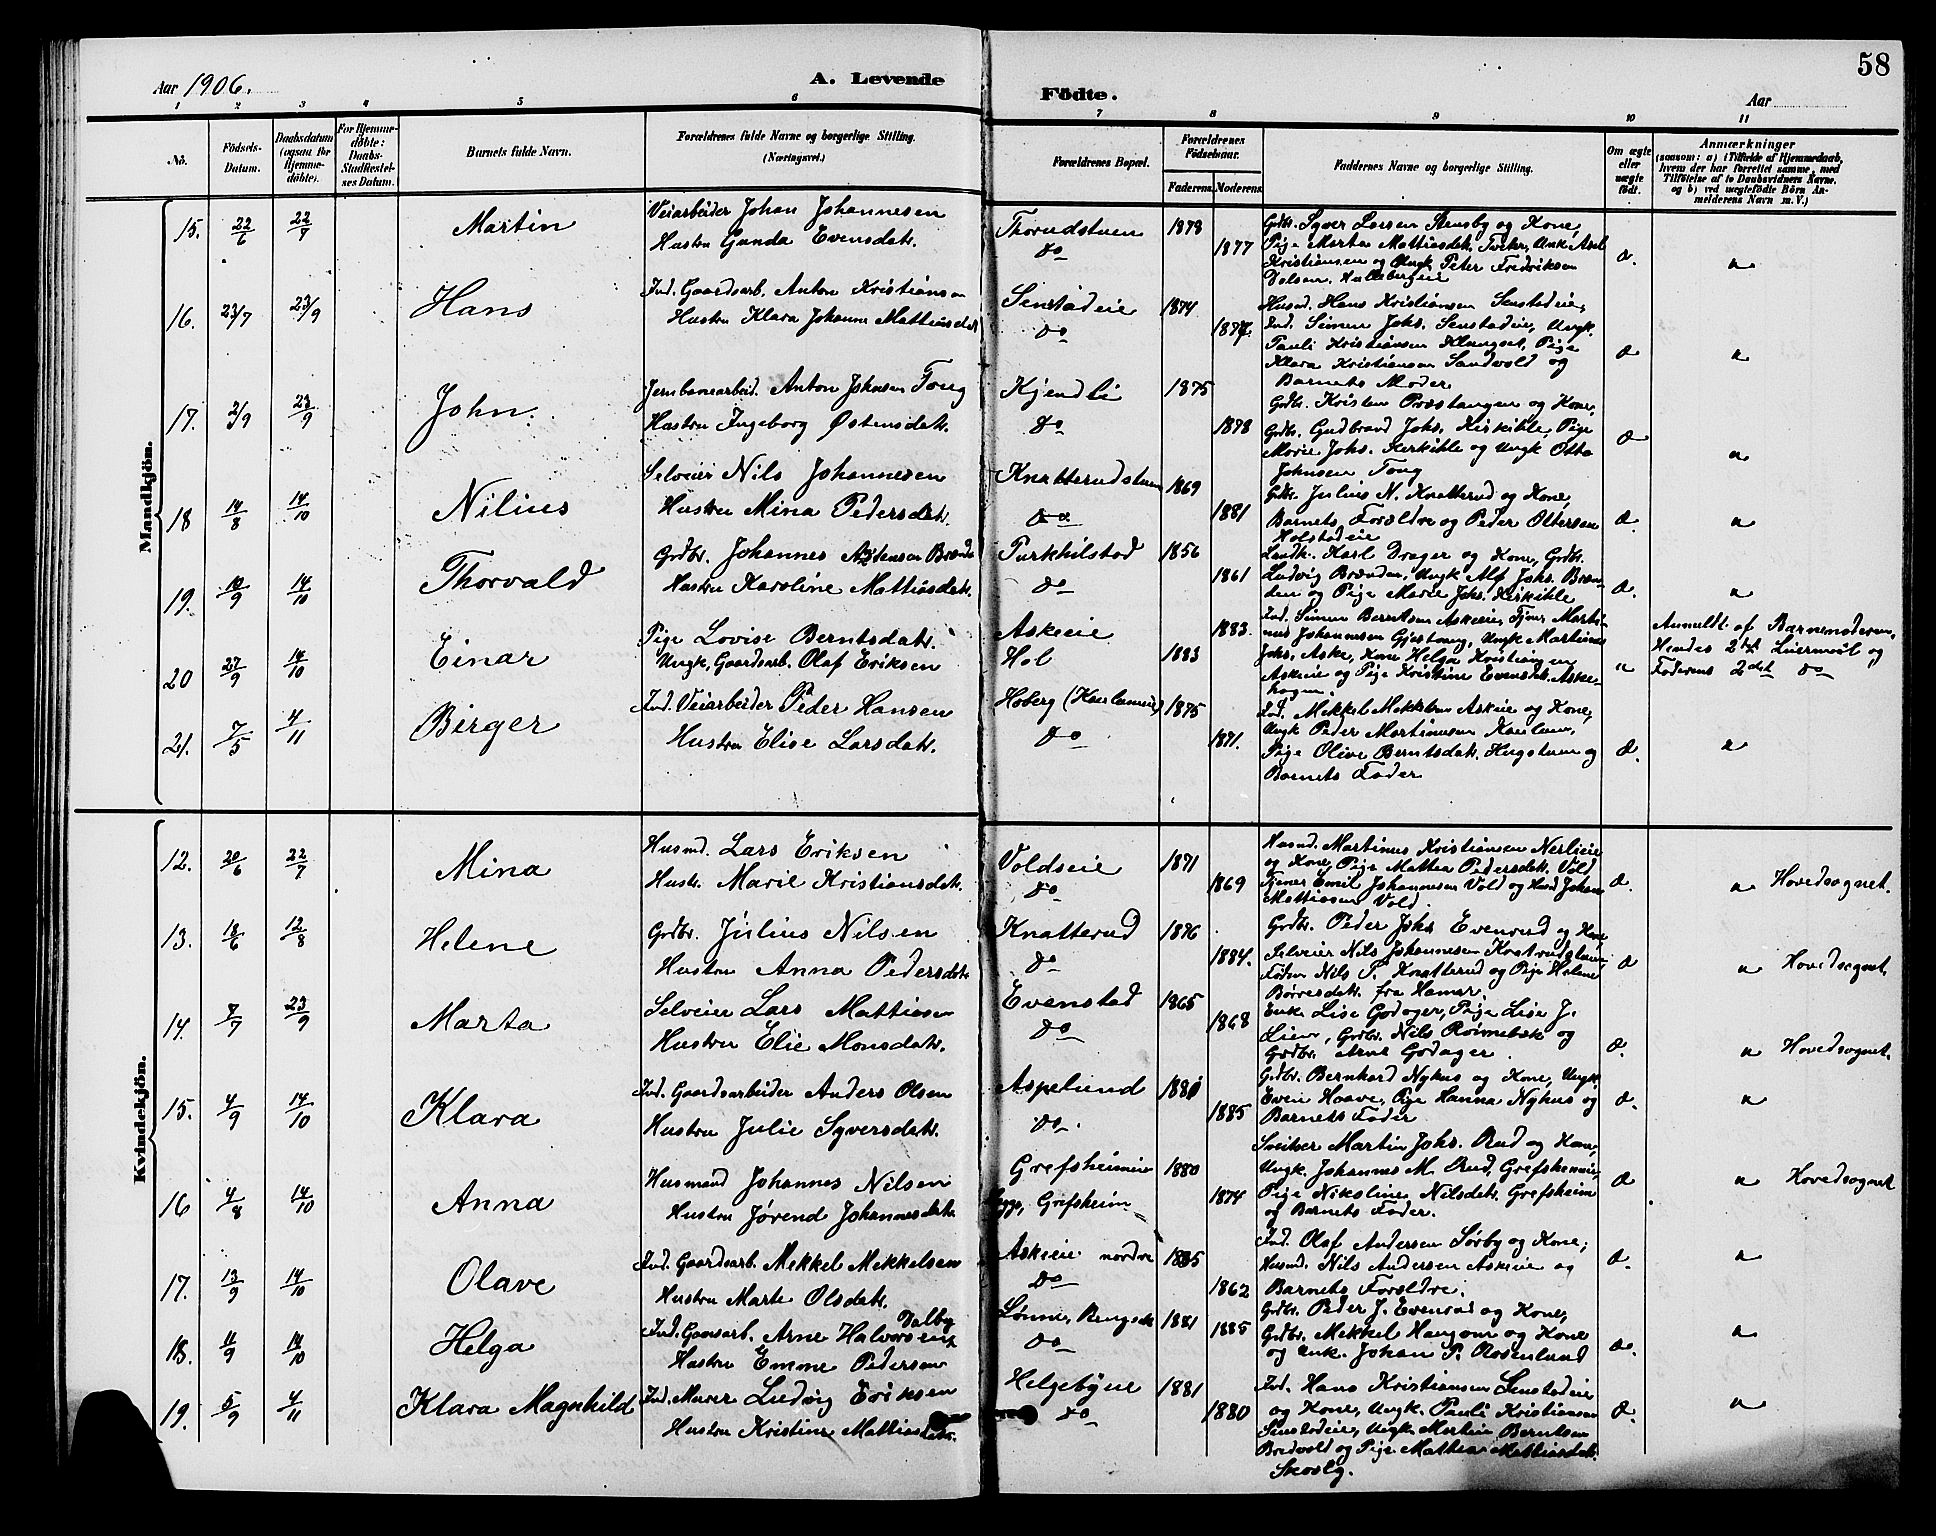 58
Aar 1906.
A. Levende
Födte.
Aar
1 2 3 4 5 6 7 8 9 10 11
No.
Födsels-Datum.
Daabsdatum (ogsaa for Hjemmedöbte).
For Hjemmedöbte: Daabs-Stadfæstelses Datum.
Barnets fulde Navn.
Forældrenes fulde Navne og borgerlige Stilling. (Næringsvei.)
Forældrenes Bopæl.
Forældrenes Födselsaar.
Faderens. Moderens.
Faddernes Navne og borgerlige Stilling.
Om ægte eller uægte födt.
Anmærkninger
(saasom: a) i Tilfælde af Hjemmedaab, hvem der har forrettet samme, med Tilföielse af to Daabsvidners Navne, og b) ved uægtefödte Börn Anmelderens Navn m. V.)
Mandkjön.
15. 22/6 22/7 Martin
Veiarbeider Johan Johannesen
Hustru Gunda Evensdatr.
Thorudstuen
do
1878
1877
Grdbr. Syver Larsen Stensby og Kone,
Pige Marta Mattiasdatr. Tveter, Ungk. Axel
Kristiansen og Ungk. Peter Fredriksen
16. 23/7 23/9 Hans
Ind. Gaardsarb. Anton Kristiansen
Hustru Klara Johanne Mattiasdatr
Senstadeie
do
1874
1874.
Husmd. Hans Kristiansen Senstadeie,
Ind. Simen Johs. Senstadeie, Ungk.
Pauli Kristiansen Klungset, Pige
Klara Kristiansen Sandvold og
Barnets Moder
17. 2/9 23/9 John.
Jernbanearbeid. Anton Johnsen Tong
Hustru Ingeborg Østensdatr.
Kjendli
do
1875
1878
Grdbr. Kristen Præstangen og Kone,
Grdbr. Gudbrand Johs. Kirkihle, Pige
Marie Johs. Kerkihle og Ungk Otto
Johnsen Tong
18 14/8 14/10 Nilius
Selveier Nils Johannesen
Hustru Mina Pedersdatr.
Knatterudstuen
do
1869
1881
Grdbr. Julius N. Knatterud og Kone,
Barnets Forældre og Peder Ottersen
Holstadeie
19. 10/9 14/10 Thorvald
Grdbr. Johannes
Hustru Karoline Mattiasdatr.
Purkhilstad
do
1856
1861
Landh. Karl Drager og Kone, Grdbr.
Ludvig Brænden, Ungk Alf Johs. Brænden
og Pige Marie Johs. Kirkihle
20 27/9 14/10 Einar
Pige Lovise Berntsdatr.
Ungk. Gaardsarb. Olaf Eriksen
Askeie
Hol
1883.
1883
Ind. Simen Berntsen Askeeie, Tjener Martinus
Johannesen Gjestvang, Ungk Martinus
Johs. Aske, Kone Helga Kristiansen
Askeeie og Pige Kristine Evensdatr. Askehagen.
u
Anmeldt af Barnemoderen,
Hendes 2det Leiermaal og
Faderens 2det do
21. 7/5 4/11 Birger
Ind. Veiarbeider Peder Hansen
Hustru Elise Larsdatr.
Hoberg
do
1875
1871.
Ind. Mekkel Mekkelsen Askeie og Kone,
Ungk Peder Martinusen Kaulum,
Pige Olive Berntsdatr. Hugstuen og
Barnets Fader
Kvindekjön.
12. 20/6 22/7 Mina
Husmd. Lars Eriksen
Hustr. Marie Kristiansdatr.
Voldseie
do
1871
1869
Husmd. Martinus Kristiansen Nerlieie
og Kone, Pige Mathea Pedersdatr. Vold
Tjener Emil Johannesen Vold og Husmd Johan
Mattiassen Vold.
Hovedsognet.
13. 18/6 12/8 Helene
Grdbr. Julius Nilsen
Hustru Anna Pedersdatr
Knatterud
do
1876
1884.
Grdbr. Peder Johs Evenrud og Kone,
Selveier Nils Johannesen
Nils P. Knatterud og Pige Helene
Børresdatr. fra Hamar.
Hovedsognet.
14. 7/7 23/9 Marta
Selveier Lars Mattiasen
Hustru Elie Monsdatr.
Evenstad
do
1865
1868
Enk. Lise Godager, Pige Lise J.
Lien, Grdbr. Nils Rømebæk og
Grdbr. Arne Godager.
Hovedsognet.
15. 4/9 14/10 Klara
Ind. Gaardsarbeider Anders Olsen
Hustru Julie Syversdatr.
Aspelund
do.
1881
1885
Grdbr. Bernhard Nyhus og Kone, Ungk.
Even Haave, Pige Hanna Nyhus og
Barnets Fader
16 4/8 14/10 Anna
Husmand Johannes Nilsen
Hustru Jørend Johannesdatr.
Grefsheimeie
Grefsheim
1880
1874
Sveitser Martin Johs. Rud og Kone,
Ungk. Johannes M. Rud, Grefsheimeie,
Pige Nikoline Nilsdatr. Grefsheim
og Barnets Fader.
Hovedsognet
17. 13/9 14/10 Olave
Ind. Gaardsarb. Mekkel Mekkelsen
Hustru Marte Olsdatr.
Askeie nordre
do
1865
1862
Ind. Olaf Andersen Sørby og Kone,
Husmd. Nils Andersen Askeie og
Barnets Forældre.
18. 11/9 14/10 Helga
Ind. Gaardsarb. Arne Halvorsen Dalby
Hustru Emme Pedersen
Lønne,
do
1881
1885
Grdbr. Peder J. Evensrud og Kone,
Grdbr. Mekkel Haugom og Kone
og Enk. Johan P. Rosenlund
19. 5/9 4/11 Klara Magnhild
Ind. Murer Ludvig Eriksen
Hustru Kristine Mattiasdatr.
Helgebyeie
do
1881
1880
Ind. Hans Kristiansen Senstadeie
og Kone, Ungk. Pauli Kristiansen
Senstadeie, Ungk. Martin Berntsen
Bredvold og Pige Mathea Mattiasdatr.
Skoslg.